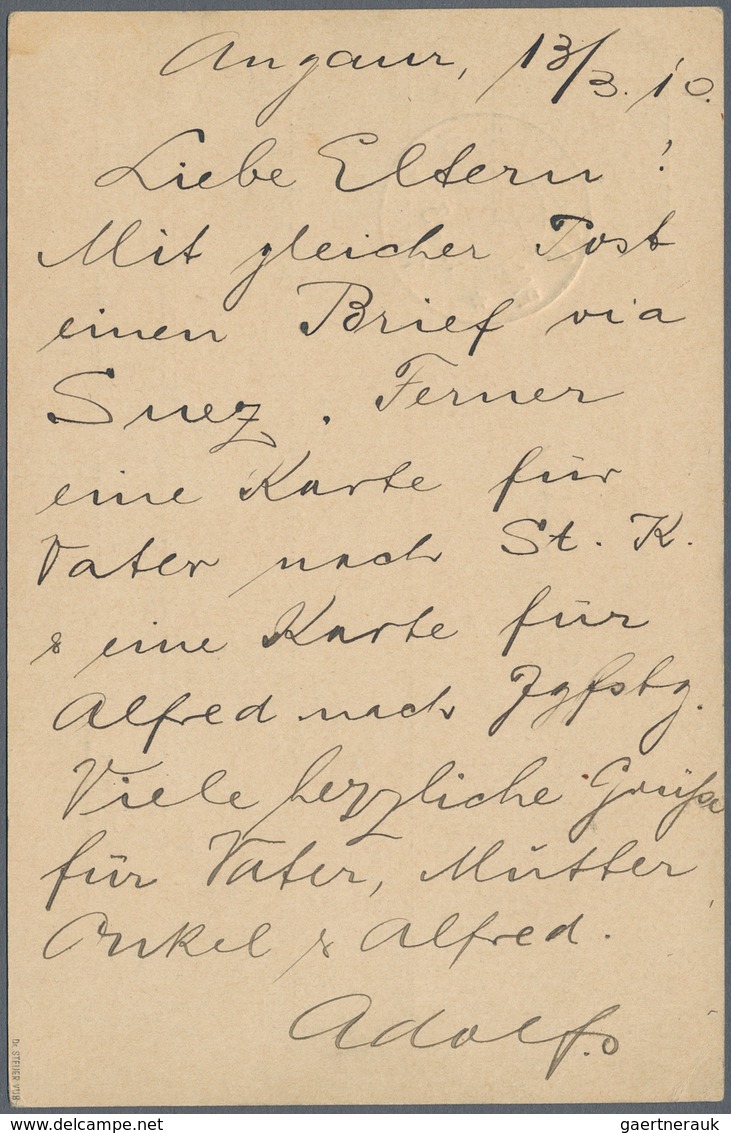 Angaur, 13/3.10.
Liebe Eltern!
Mit gleicher Post
einen Brief via
Suez. Ferner
eine Karte für
Vater nach St. K.
& eine Karte für
Alfred nach Jgfstg.
Viele herzliche Grüße
für Vater, Mutter
Onkel & Alfred.
Adolf.
Dr. STEUER VÖB
delcampe.net
gaertnerauk